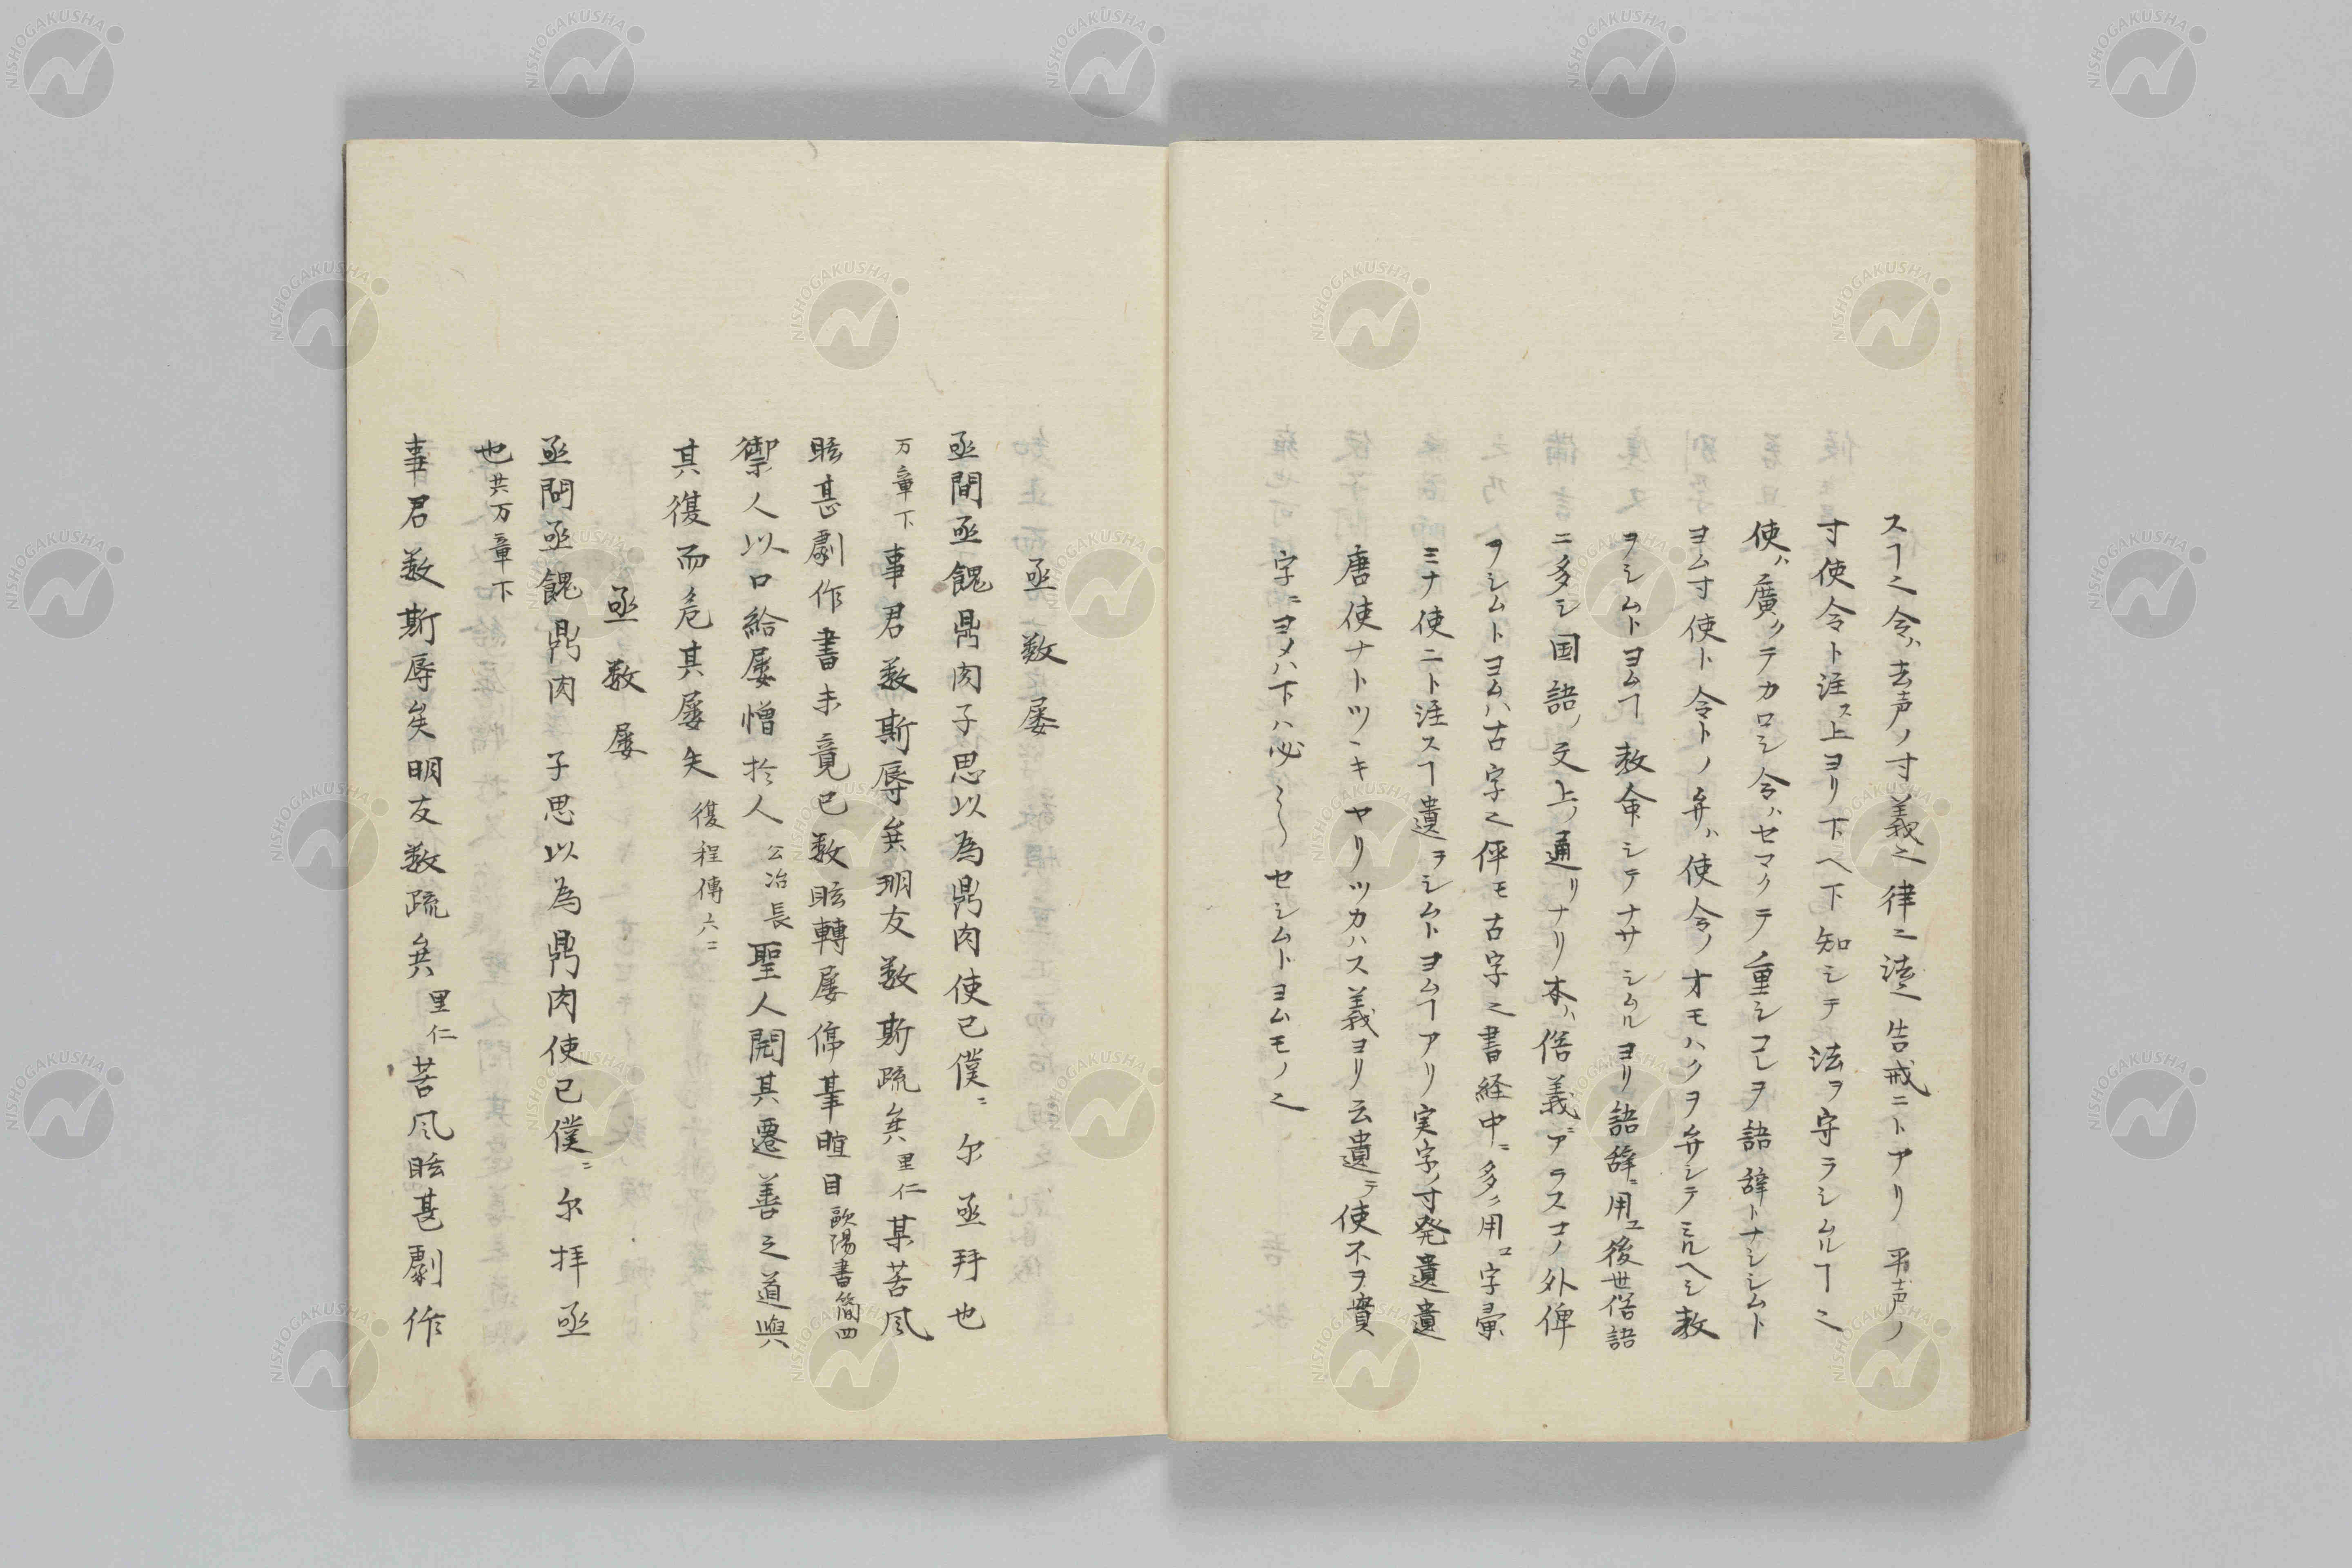 スヿ之令ハ去声ノ寸義之律ニ法之告戒ニトアリ平声ノ
寸使令ト注ス上ヨリ下ヘ下知シテ法ヲ守ラシムルヿ之
使ハ廣クテカロシ令ハセマクテ重シコレヲ語辞トナシシムト
ヨム寸使ト令トノ弁ハ使令ノオモハクヲ弁シテミルヘシ教
ヲシムトヨムヿ教命シテナサシムルヨリ語辞ニ用ユ後世俗語
ニ多シ国語ノ文上ノ通リナリ本ハ俗義ニアラスコノ外俾
ヲシムトヨムハ古字之伻モ古字之書経中ニ多ク用ユ字彙
ミナ使ニト注スヿ遣ヲシムトヨムヿアリ実字ノ寸発遣遣
唐使ナトツヽキヤリツカハス義ヨリ云遣テ使不ヲ實
字ニヨメハ下ハ必〻〳〵セシムトヨムモノ之
亟数屡
亟問亟餽鼎肉子思以為鼎肉使己僕〻尓亟拜也
万章下事君数斯辱矣朋友数斯疏矣里仁某苦風
眩甚劇作書未竟已数眩轉屡停筆瞪目欧陽書簡四
禦人以口給屡憎於人公冶長聖人開其遷善之道與
其復而危其屡失復程傳六二
亟数屡
亟問亟餽鼎肉子思以為鼎肉使己僕〻尓拝亟
也共万章下
事君数斯辱矣朋友数疏矣里仁苦風眩甚劇作
NISHOGAKUSHA